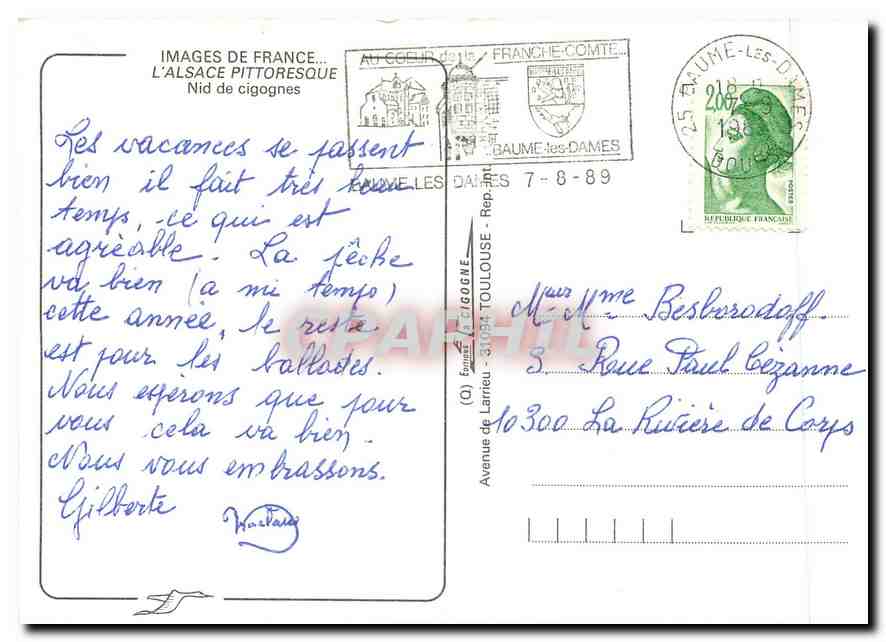 IMAGES DE FRANCE...
L'ALSACE PITTORESQUE
Nid de cigognes
AU COEUR de la FRANCHE-COMTE...
BAUME-les-DAMES
BAUME LES DAMES 7-8-89
25 BAUME-LES-DAMES
18 H
7-8
198
DOUBS
2,00
POSTES
REPUBLIQUE FRANÇAISE
Les vacances se passent
bien il fait très beau
temps, ce qui est
agréable. La pêche
va bien (a mi temps)
cette année, le reste
est pour les ballades.
Nous espérons que pour
vous cela va bien.
Nous vous embrassons.
Gilberte
CPAPHIL
(Q) Éditions LA CIGOGNE
Avenue de Larrieu - 31094 TOULOUSE - Rep. int.
Mme Besborodoff.
3. Rue Paul Cézanne
10300 La Rivière de Corps